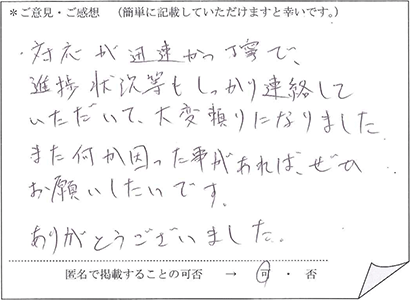 ＊ご意見・ご感想　（簡単に記載していただけますと幸いです。）
・対応が迅速かつ丁寧で、
進捗状況等もしっかり連絡して
いただいて、大変頼りになりました
また何か困った事があれば、ぜひ
お願いしたいです。
ありがとうございました。
匿名で掲載することの可否　→　可　・　否